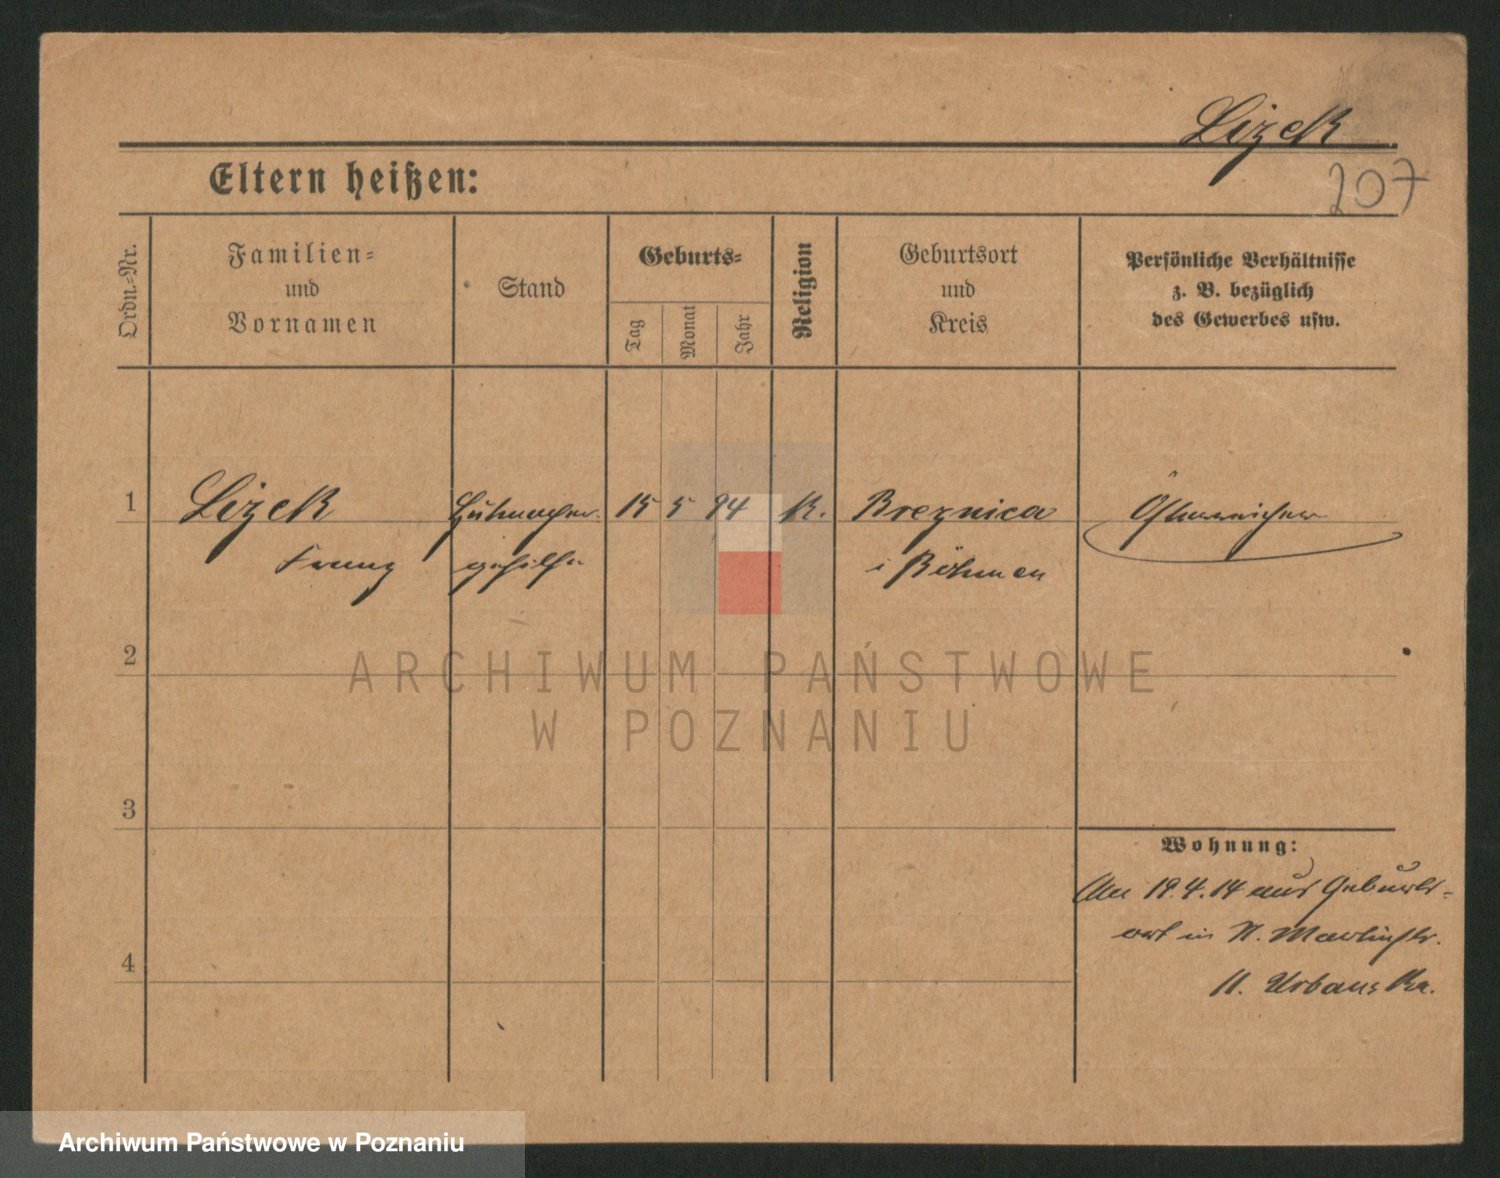 Lizek
207
Eltern heißen:
Ordn.-Nr.
Familien-
und
Vornamen
Stand
Geburts-
Tag
Monat
Jahr
Religion
Geburtsort
und
Kreis
Persönliche Verhältnisse
z. B. bezüglich
des Gewerbes usw.
1
Lizek
Franz
Hutmacher-
gehilfe
15
5
94
K.
Breznica
i Böhmen
Österreicher
2
3
4
Wohnung:
Am 19.4.14 aus Geburts-
ort in St. Martinstr.
11. Urbanska.
ARCHIWUM PAŃSTWOWE
W POZNANIU
Archiwum Państwowe w Poznaniu